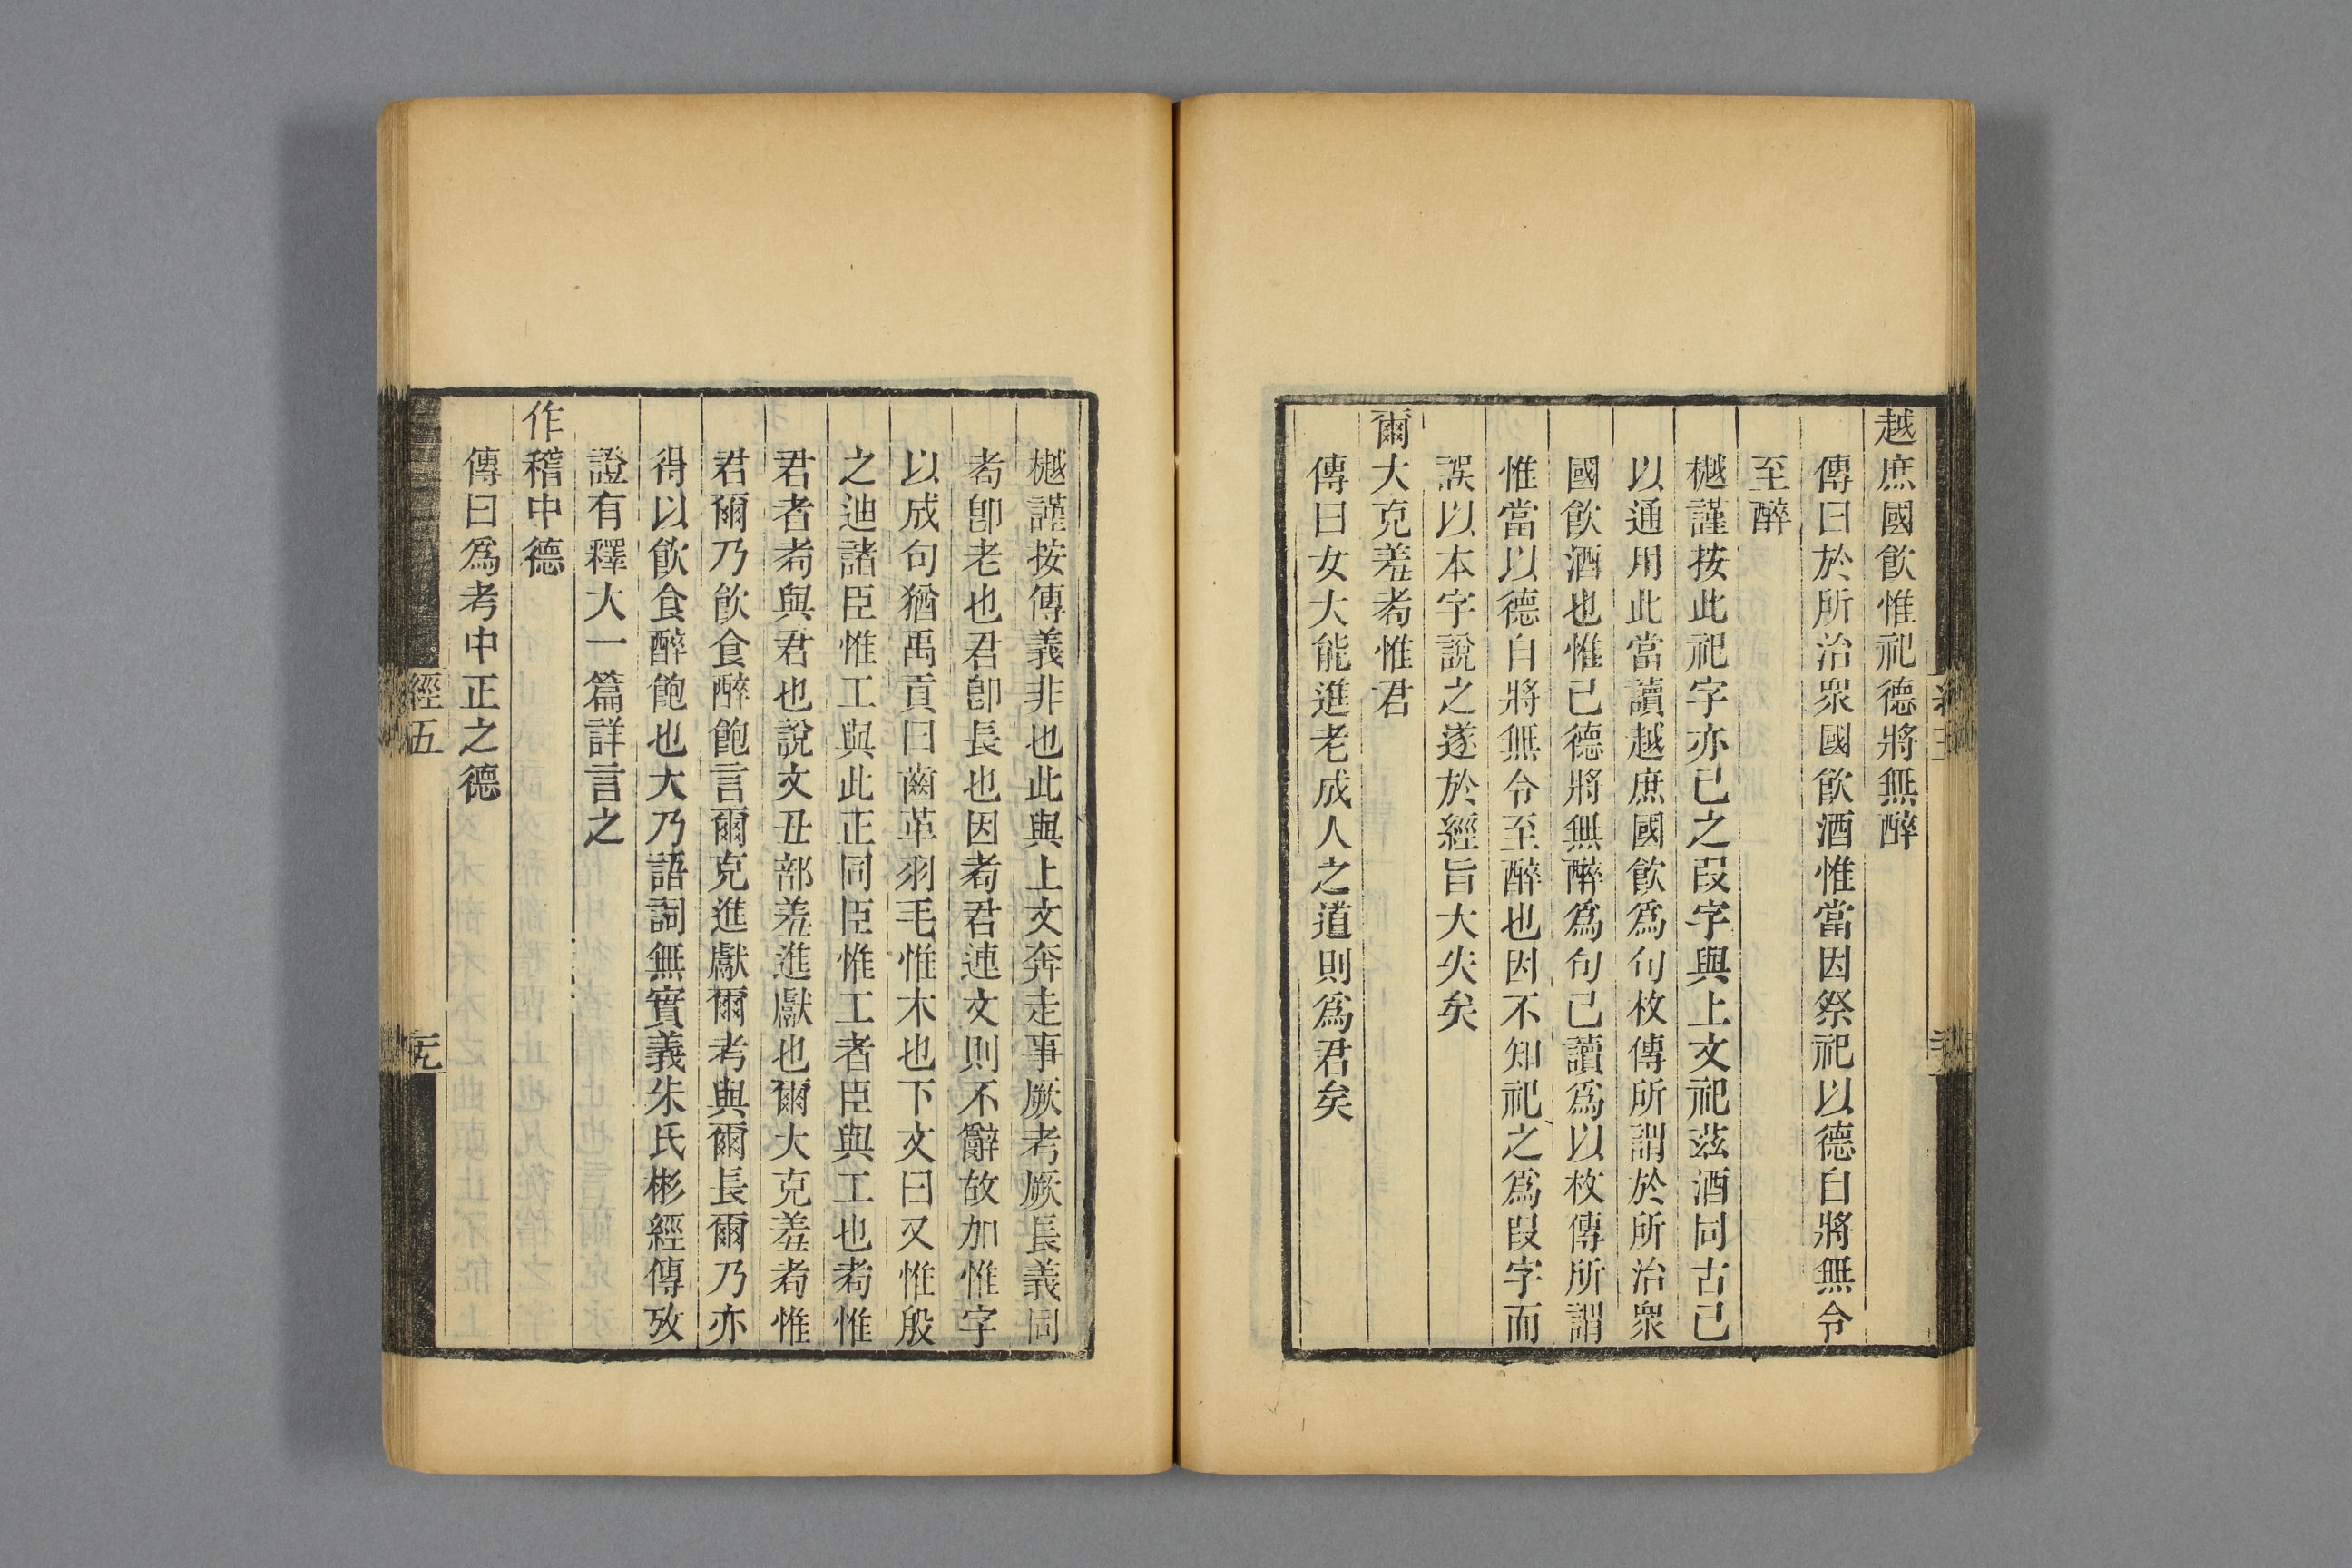 越庶國飮惟祀德將無醉
傳曰於所治衆國飮酒惟當因祭祀以德自將無令
至醉
樾謹按此祀字亦已之叚字與上文祀茲酒同古已
以通用此當讀越庶國飮爲句枚傳所謂於所治衆
國飮酒也惟已德將無醉爲句已讀爲以枚傳所謂
惟當以德自將無令至醉也因不知祀之爲叚字而
誤以本字說之遂於經旨大失矣
爾大克羞耇惟君
傳曰女大能進老成人之道則爲君矣
樾謹按傳義非也此與上文奔走事厥考厥長義同
耇卽老也君卽長也因耇君連文則不辭故加惟字
以成句猶禹貢曰齒革羽毛惟木也下文曰又惟殷
之迪諸臣惟工與此正同臣惟工者臣與工也耇惟
君者耇與君也說文丑部羞進獻也爾大克羞耇惟
君爾乃飮食醉飽言爾克進獻爾考與爾長爾乃亦
得以飮食醉飽也大乃語詞無實義朱氏彬經傳攷
證有釋大一篇詳言之
作稽中德
傳曰爲考中正之德
經五